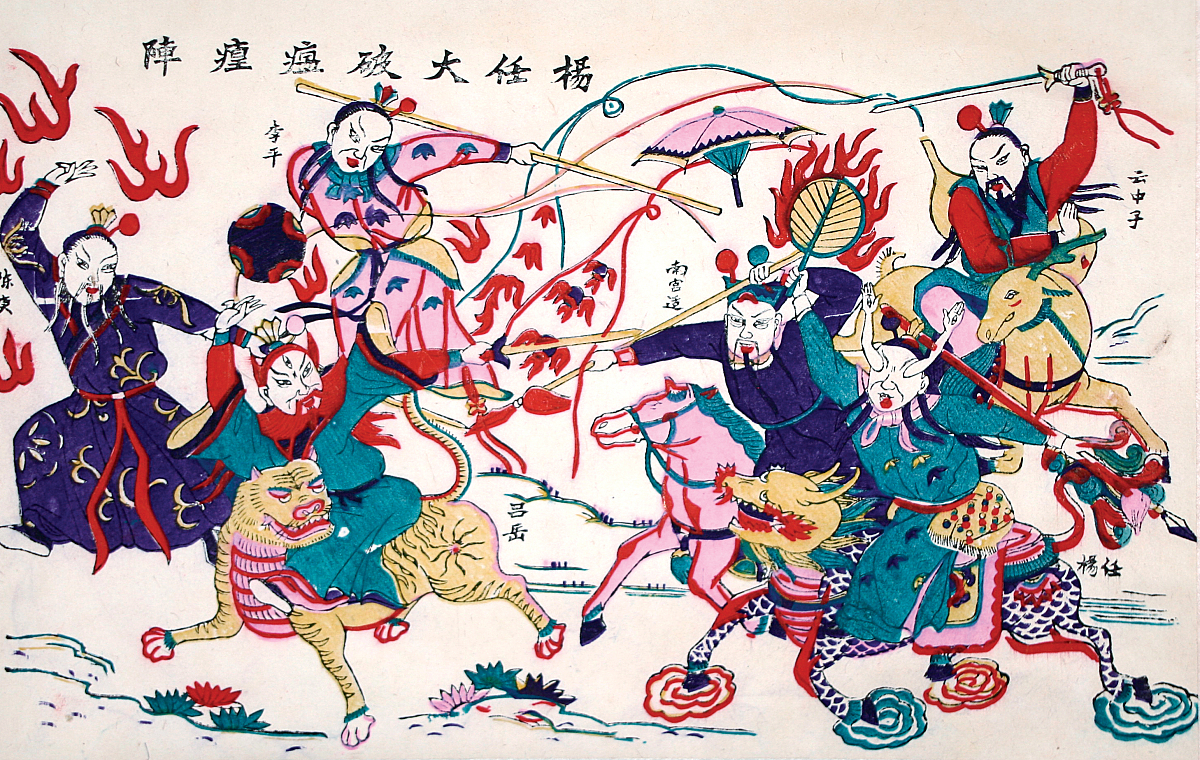 楊任大破瘟㾮陣
李平
云中子
南宫适
吕岳
楊任